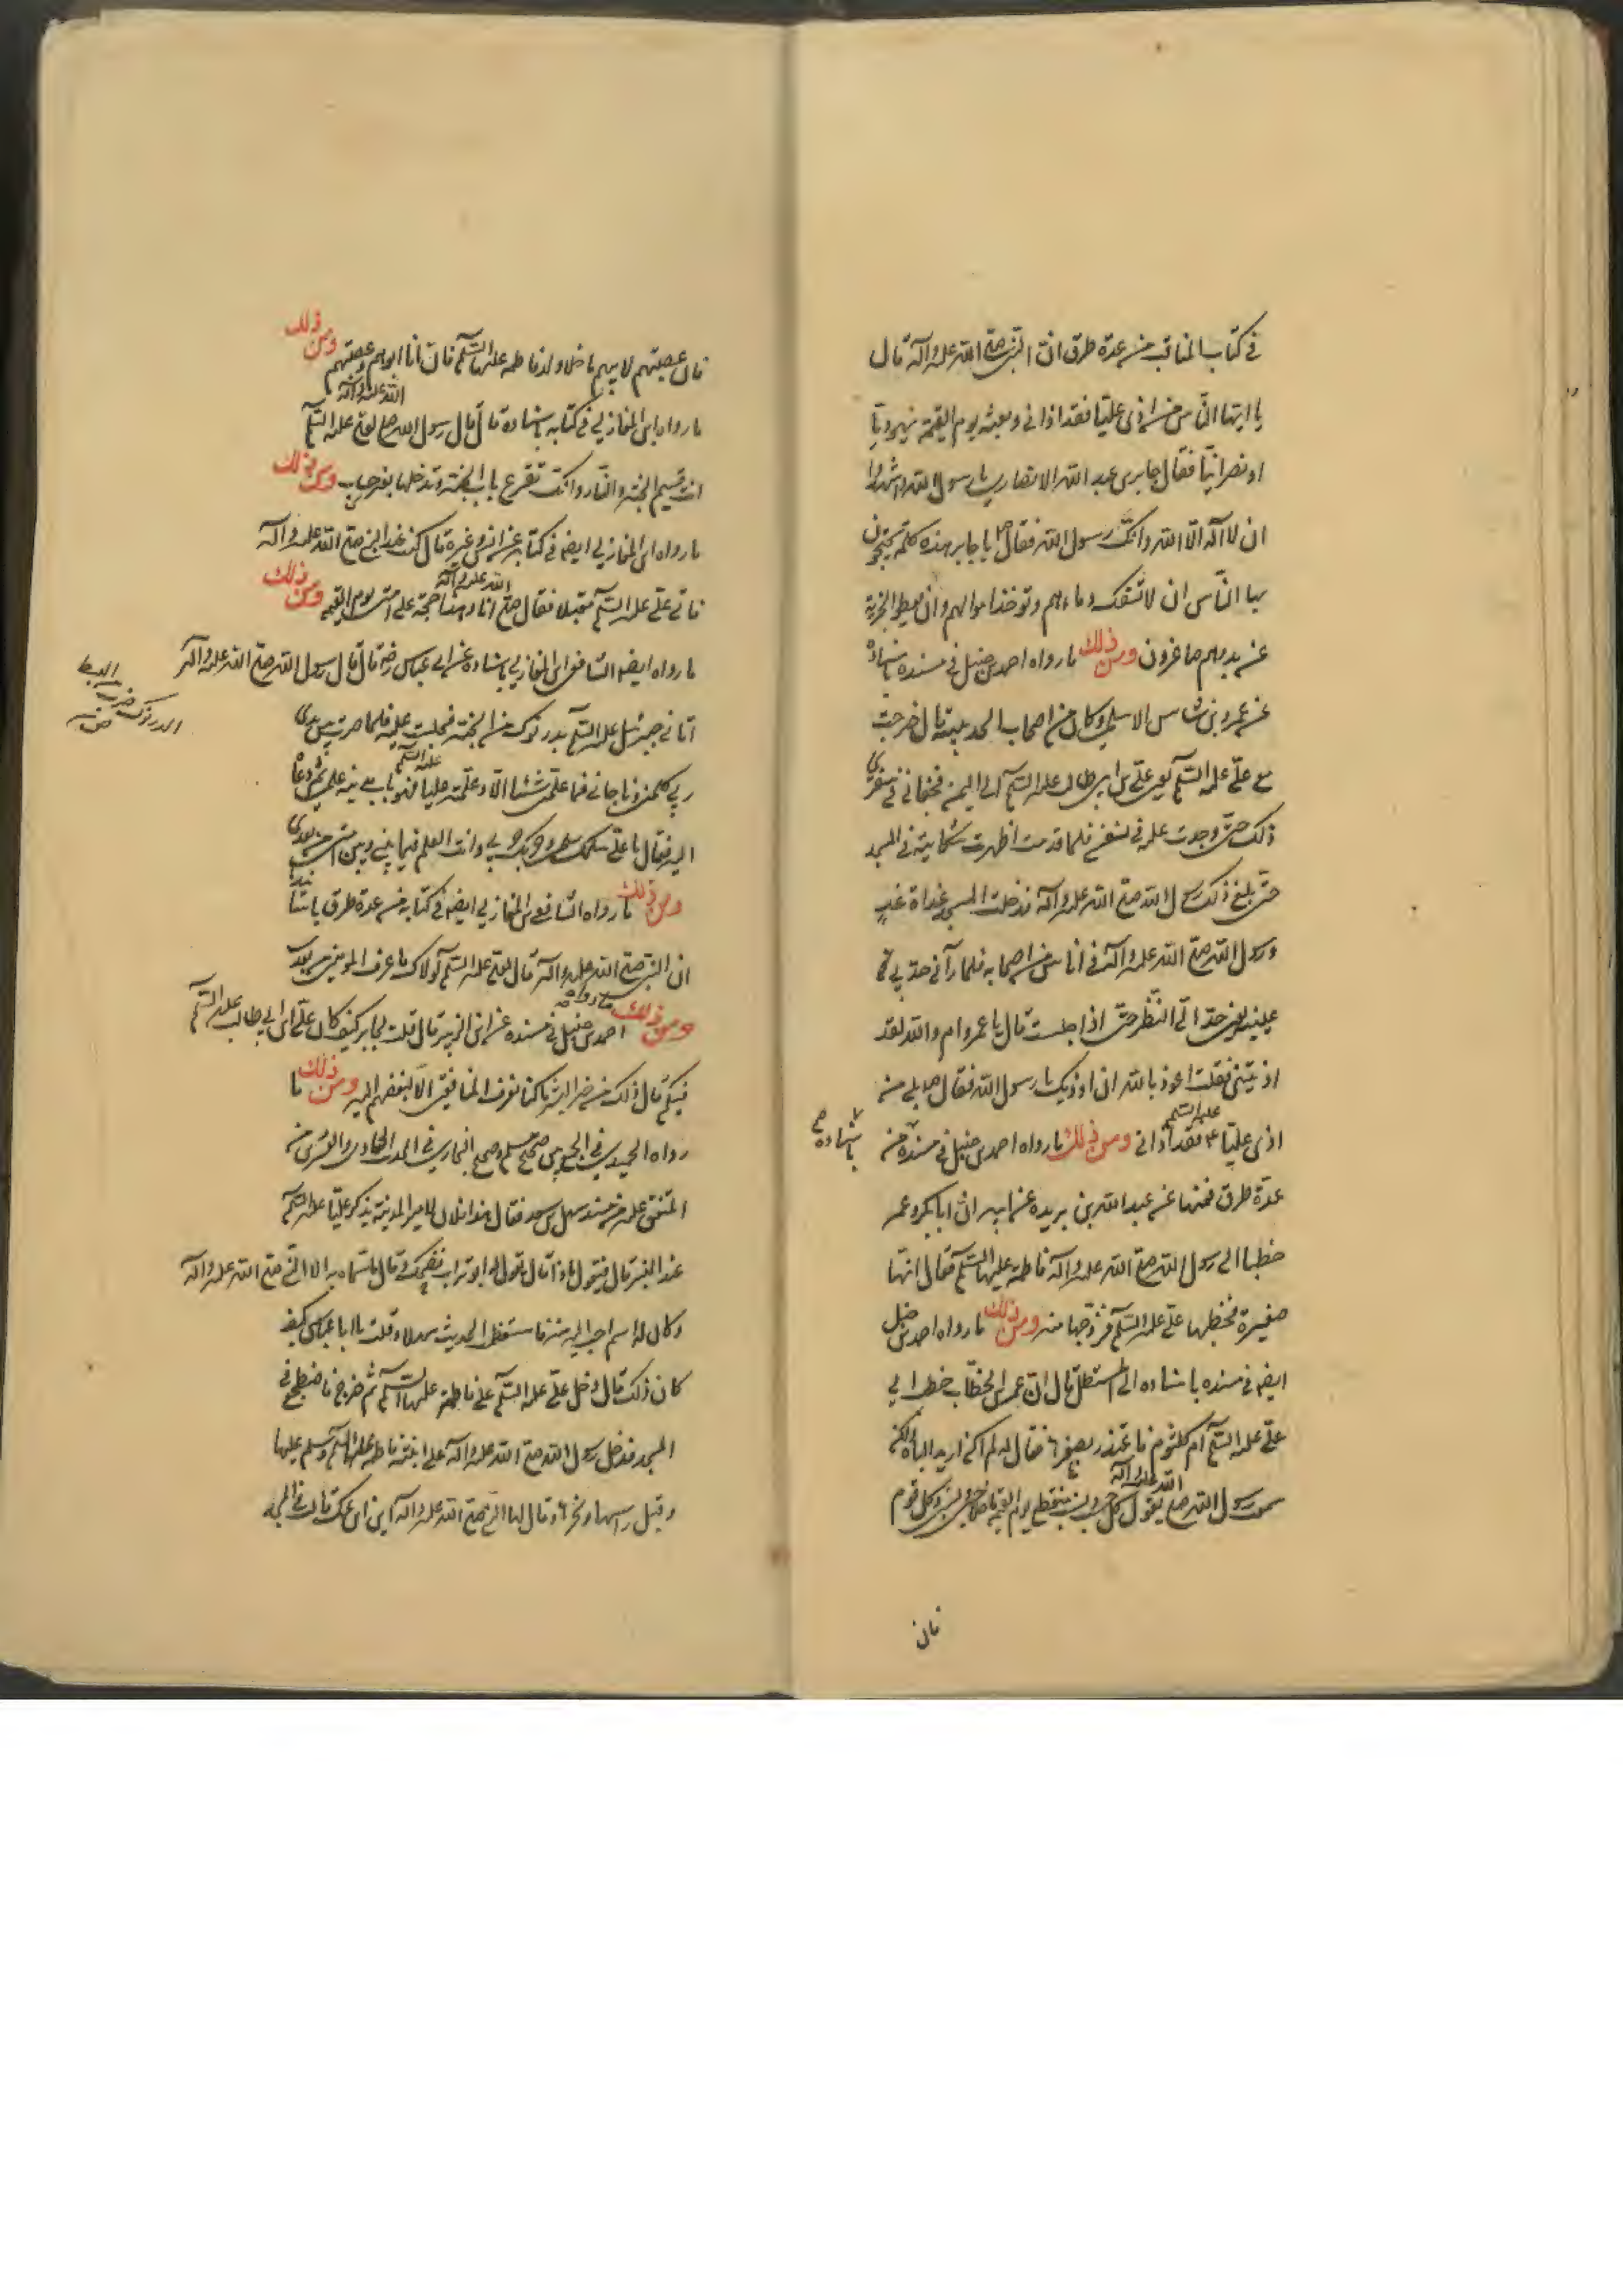 في كتاب المناقب من عدة طرق انّ النبي صلى الله عليه وآله قال
يا ايها النّاس من اذى عليّا فقد اذاني وبعثه يوم القيمة يهوديّا
او نصرانيّا فقال جابر بن عبد الله الانصاري يا رسول الله وان شهدوا
ان لا اله الّا الله وانّك رسول الله فقال ص يا جابر هذه كلمة يحتجزون
بها النّاس ان لا تسفك دماءهم وتوخذ اموالهم وان يعطوا الجزية
عن يد وهم صاغرون ومن ذلك ما رواه احمد بن حنبل في مسنده باسناده
عن عمرو بن شاس الاسلمي وكان من اصحاب الحديبية قال خرجت
مع عليّ عليه السّلم يعني عليّ بن ابي طالب عليه السّلم الى اليمن فجفاني في سفري
ذلك حتّى وجدت عليه في نفسي فلما قدمت اظهرت شكايته في المسجد
حتّى بلغ ذلك رسول الله صلى الله عليه وآله فدخلت المسجد غداة غدٍ
ورسول الله صلى الله عليه وآله في اناس من اصحابه فلما رآني حدّ بي
عينيه يعني حدّ اليّ النّظر حتى اذا جلست قال يا عمرو ام والله لقد
اذيتني فقلت اعوذ بالله ان اوذيك يا رسول الله فقال ص بلى من
اذى عليّا عليه السّلم فقد اذاني ومن ذلك ما رواه احمد بن حنبل في مسنده من
باسناده صح
عدّة طرق فمنها عن عبد الله بن بريده عن ابيه انّ ابا بكر وعمر
خطبا الى رسول الله صلى الله عليه وآله فاطمة عليها السّلم فقال انها
صغيرة فخطبها عليّ عليه السّلم فزوّجها منه ومن ذلك ما رواه احمد بن حنبل
ايضا في مسنده باسناده الى المستطل قال انّ عمر بن الخطّاب خطب الى
عليّ عليه السّلم ام كلثوم فاعتذر بصغرها فقال له لم اكن اريد الباه ولكنّي
سمعت رسول الله صلى الله عليه وآله يقول كل حسب ونسب منقطع يوم القيمة ما خلا حسبي ونسبي وكل قوم
فان
فان عصبتهم لابيهم ما خلا ولد فاطمه عليها السّلم فان انا ابوهم وعصبتهم ومن ذلك
ما رواه ابن المغازلي في كتابه باسناده قال قال رسول الله صلى الله عليه وآله لعلي عليه السّلم
انّك قسيم الجنّة والنّار وانّك تقرع باب الجنّة وتدخلها بغير حساب ومن ذلك
ما رواه ابن المغازلي ايضا في كتابه عن انس وغيره قال كنت عند النبي صلى الله عليه وآله
فاتى عليّ عليه السّلم مقبلا فقال صلى الله عليه وآله انا وهذا حجّة على امتي يوم القيمة ومن ذلك
ما رواه ايضا الشافعي ابن المغازلي باسناده عن ابن عباس رضه قال قال رسول الله صلى الله عليه وآله
الدرنوك ضرب من البسط
اتاني جبرئيل عليه السّلم بدرنوك من الجنّة فجلست عليه فلما صرت بين يدي
ربي كلمني وناجاني فما علّمني شيئا الّا وعلّمته عليا عليه السّلم فهو باب مدينة علمي ثم دعاه
اليه فقال يا عليّ سلمك سلمي وحربك حربي وانت العلم فيما بيني وبين امتي من بعدي
ومن ذلك ما رواه الشافعي ابن المغازلي ايضا في كتابه من عدة طرق باسناده
ان النبي صلى الله عليه وآله قال لعلي عليه السّلم لولاك ما عرف المومنون من بعدي
ومن ذلك ما رواه احمد بن حنبل في مسنده عن ابي الزبير قال قلت لجابر كيف كان عليّ ابن ابي طالب عليه السّلم
فيكم قال ذلك من خير البشر ما كنا نعرف المنافقين الّا ببغضهم اليه ومن ذلك ما
رواه الحميدي في الجمع بين صحيح مسلم وصحيح البخاري في الحديث الحادي والعشرين من
المتفق عليه من مسند سهل بن سعد فقال هذا فلان لامير المدينة يذكر عليّا عليه السّلم
عند المنبر قال فيقول ماذا قال يقول له ابو تراب فضحك وقال ما سمّاه به الّا النّبي صلى الله عليه وآله
وكان له اسم احب اليه منه فاستعظمت الحديث سهلا وقلت يا ابا عباس كيف
كان ذلك قال دخل عليّ عليه السّلم على فاطمة عليها السّلم ثم خرج فاضطجع في
المسجد فدخل رسول الله صلى الله عليه وآله على ابنته فاطمة عليها السّلم وسلم عليها
وقبل راسها ونحرها وقال لها النبي صلى الله عليه وآله اين ابن عمك قالت في المسجد